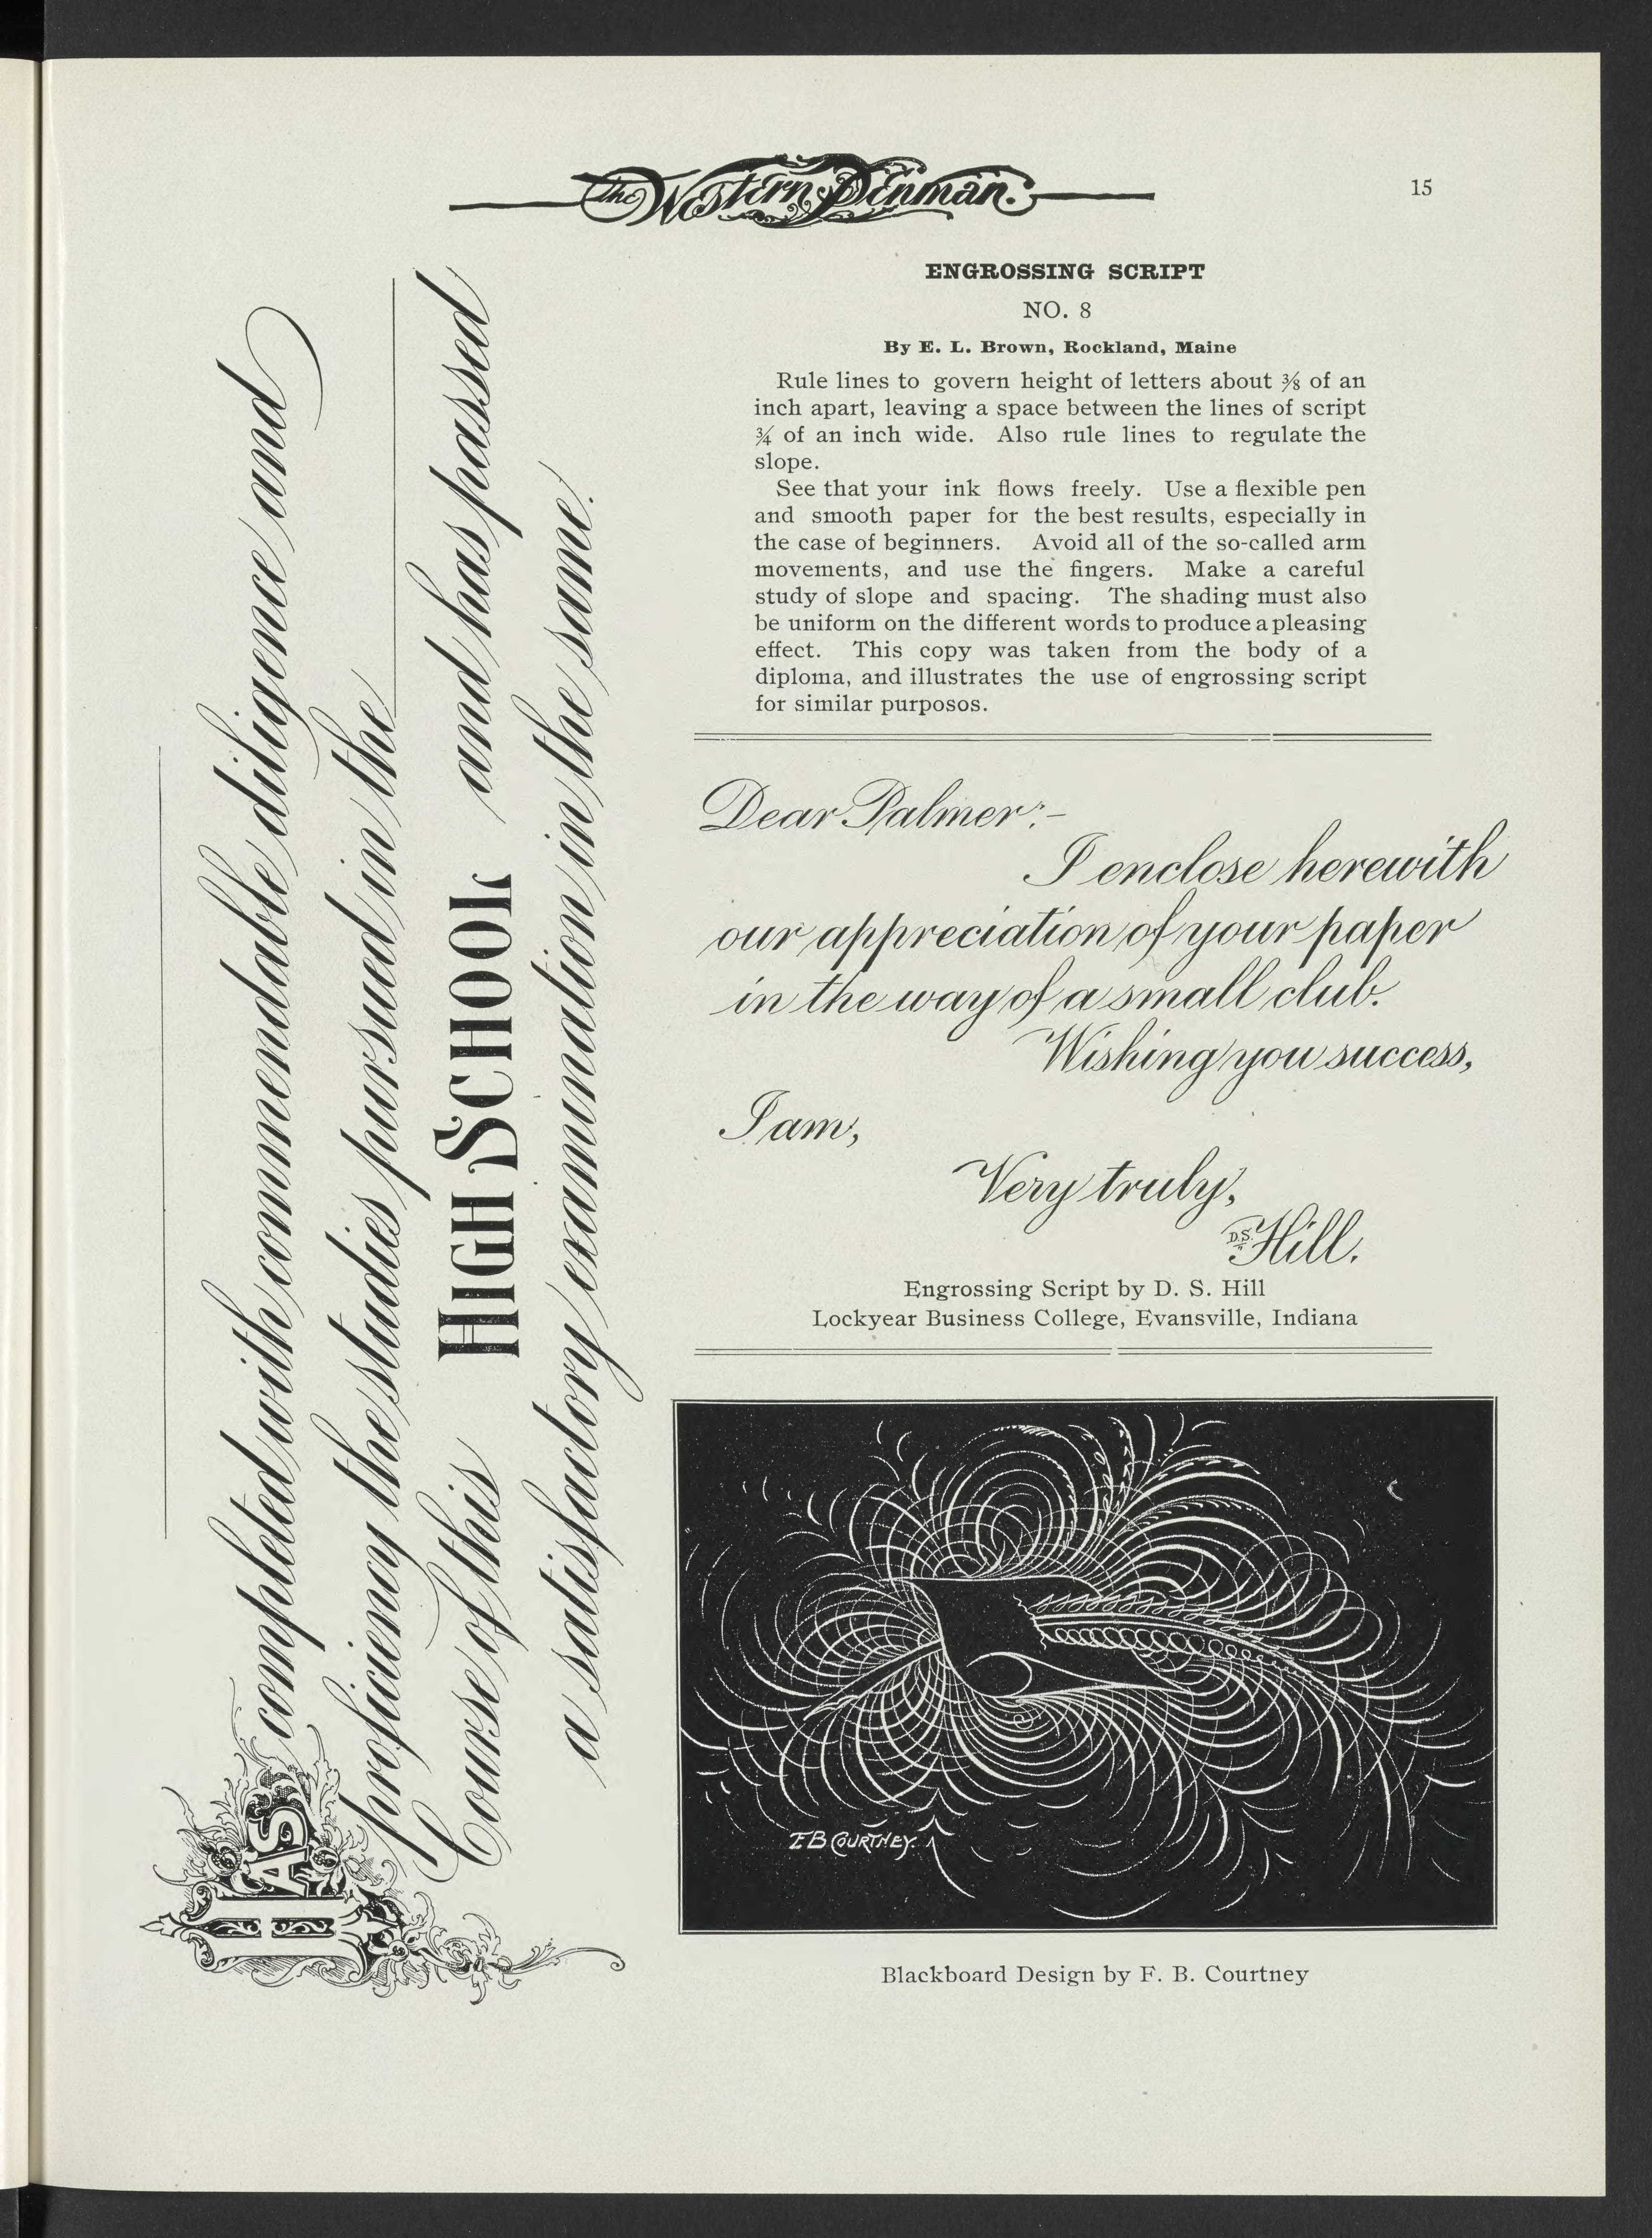 The Western Penman.
15
Has completed with commendable diligence and
proficiency the studies pursued in the
Course of this HIGH SCHOOL and has passed
a satisfactory examination in the same.
ENGROSSING SCRIPT
NO. 8
By E. L. Brown, Rockland, Maine
Rule lines to govern height of letters about ⅜ of an
inch apart, leaving a space between the lines of script
¾ of an inch wide. Also rule lines to regulate the
slope.
See that your ink flows freely. Use a flexible pen
and smooth paper for the best results, especially in
the case of beginners. Avoid all of the so-called arm
movements, and use the fingers. Make a careful
study of slope and spacing. The shading must also
be uniform on the different words to produce a pleasing
effect. This copy was taken from the body of a
diploma, and illustrates the use of engrossing script
for similar purposos.
Dear Palmer:-
I enclose herewith
our appreciation of your paper
in the way of a small club.
Wishing you success,
I am,
Very truly,
D.S. Hill.
Engrossing Script by D. S. Hill
Lockyear Business College, Evansville, Indiana
F B COURTNEY.
Blackboard Design by F. B. Courtney